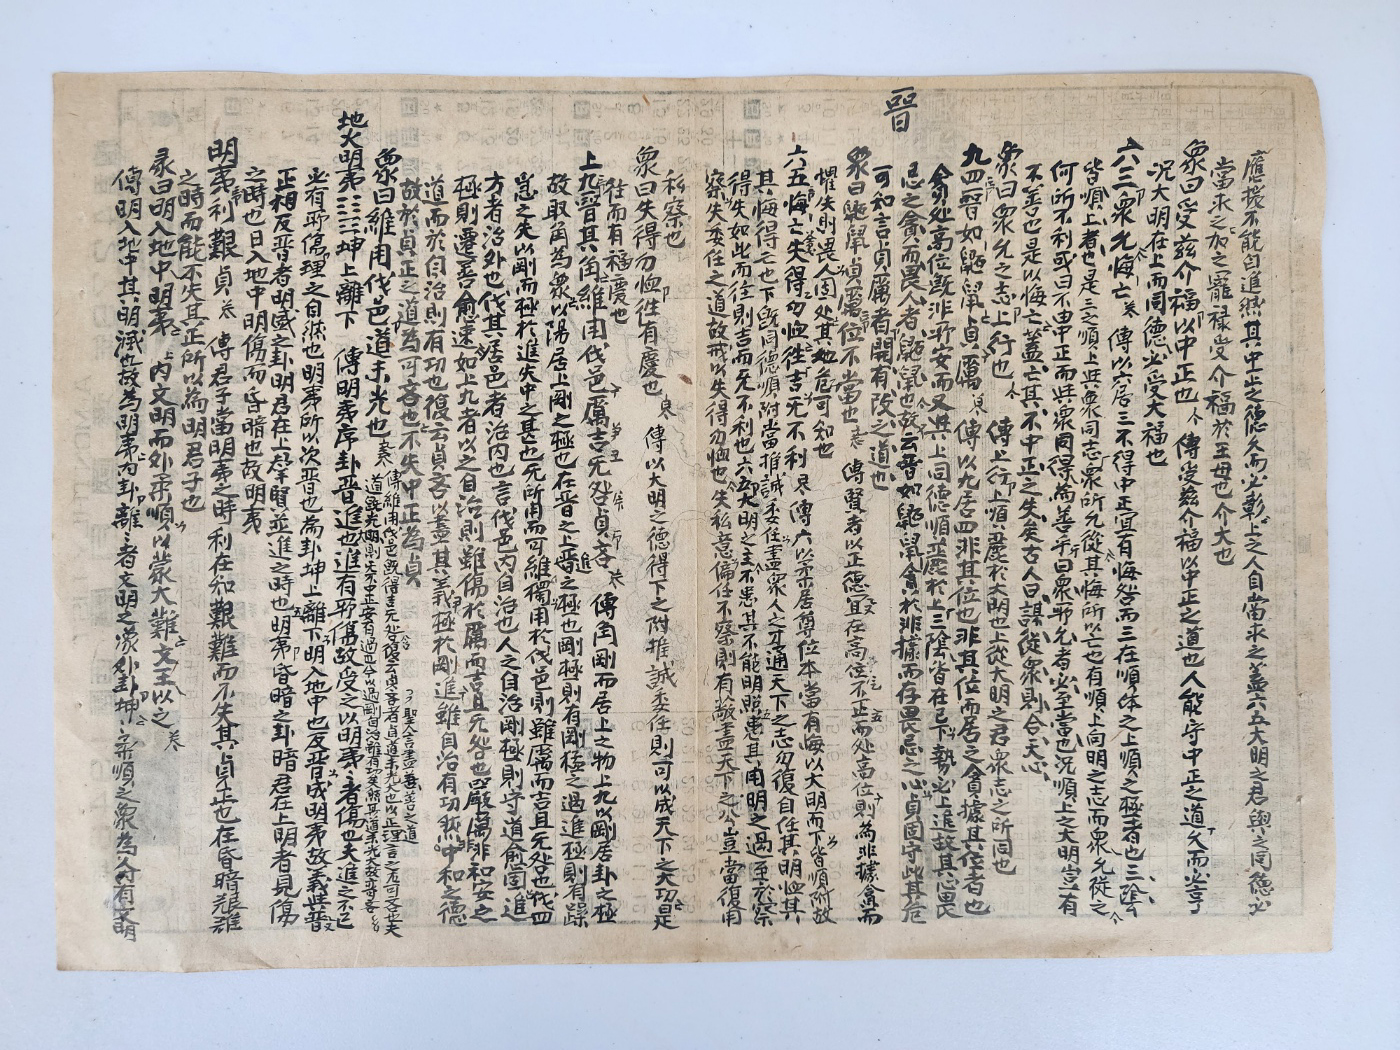 晉
應援不能自進然其中正之德久而必彰上之人自當求之蓋六五大明之君與之同德必
當求之加之寵祿受介福於王母也介大也
象曰受茲介福以中正也 傳受茲介福以中正之道也人能守中正之道久而必亨
況大明在上而同德必受大福也
六三眾允悔亡 傳以六居三不得中正宜有悔咎而三在順体之上順之極者也三陰
皆順上者也是三之順上與眾同志眾所允從其悔所以亡也有順上向明之志而眾允從之
何所不利或曰不由中正而與眾同得為善乎曰眾所允者必至當也況順上之大明豈有
不善也是以悔亡蓋亡其不中正之失矣古人曰謀從眾則合天心
象曰眾允之志上行也 傳上行上順麗於大明也上從大明之君眾志之所同也
九四晉如鼫鼠貞厲 傳以九居四非其位也非其位而居之貪據其位者也
貪處高位既非所安而又與上同德順麗於上三陰皆在己下勢必上進故其心畏
忌之貪而畏人者鼫鼠也故云晉如鼫鼠貪於非據而存畏忌之心貞固守此其危
可知言貞厲者開有改之道也
象曰鼫鼠貞厲位不當也 傳賢者以正德宜在高位不正而處高位則為非據貪而
懼失則畏人固處其地危可知也
六五悔亡失得勿恤往吉无不利 傳六以柔居尊位本當有悔以大明而下皆順附故
其悔得亡也下既同德順附當推誠委任盡眾人之才通天下之志勿復自任其明恤其
得失如此而往則吉而无不利也六五大明之主不患其不能明照患其用明之過至於察
察失委任之道故戒以失得勿恤也失私意偏任不察則有蔽盡天下之公豈當復用
私察也
象曰失得勿恤往有慶也 傳以大明之德得下之附推誠委任則可以成天下之大功是
往而有福慶也
上九晉其角維用伐邑厲吉无咎貞吝 傳角剛而居上之物上九以剛居卦之極
故取角為象以陽居上剛之極也在晉之上晉之極也剛極則有剛極之過進極則有躁
急之失以剛而極於進失中之甚也无所用而可維獨用於伐邑則雖厲而吉且无咎也伐四
方者治外也伐其居邑者治內也言伐邑內自治也人之自治剛極則守道愈固進
極則遷善愈速如上九者以之自治則雖傷於厲而吉且无咎也嚴厲非和安之
道而於自治則有功也復云貞吝以盡其義極於剛進雖自治有功然中和之德
故於貞正之道為可吝也不失中正為貞
象曰維用伐邑道未光也
地火明夷 坤上離下 傳明夷序卦晉進也進有所傷故受之以明夷夷者傷也夫進之不已
必有所傷理之自然也明夷所以次晉也為卦坤上離下明入地中也反晉成明夷故義與晉
正相反晉者明盛之卦明君在上羣賢並進之時也明夷昏暗之卦暗君在上明者見傷
之時也日入地中明傷而昏暗也故明夷
明夷利艱貞 傳君子當明夷之時利在知艱難而不失其貞正也在昏暗艱難
之時而能不失其正所以為明君子也
彖曰明入地中明夷 內文明而外柔順以蒙大難文王以之
傳明入地中其明滅也故為明夷內卦離離者文明之象外卦坤坤柔順之象為人內有文明